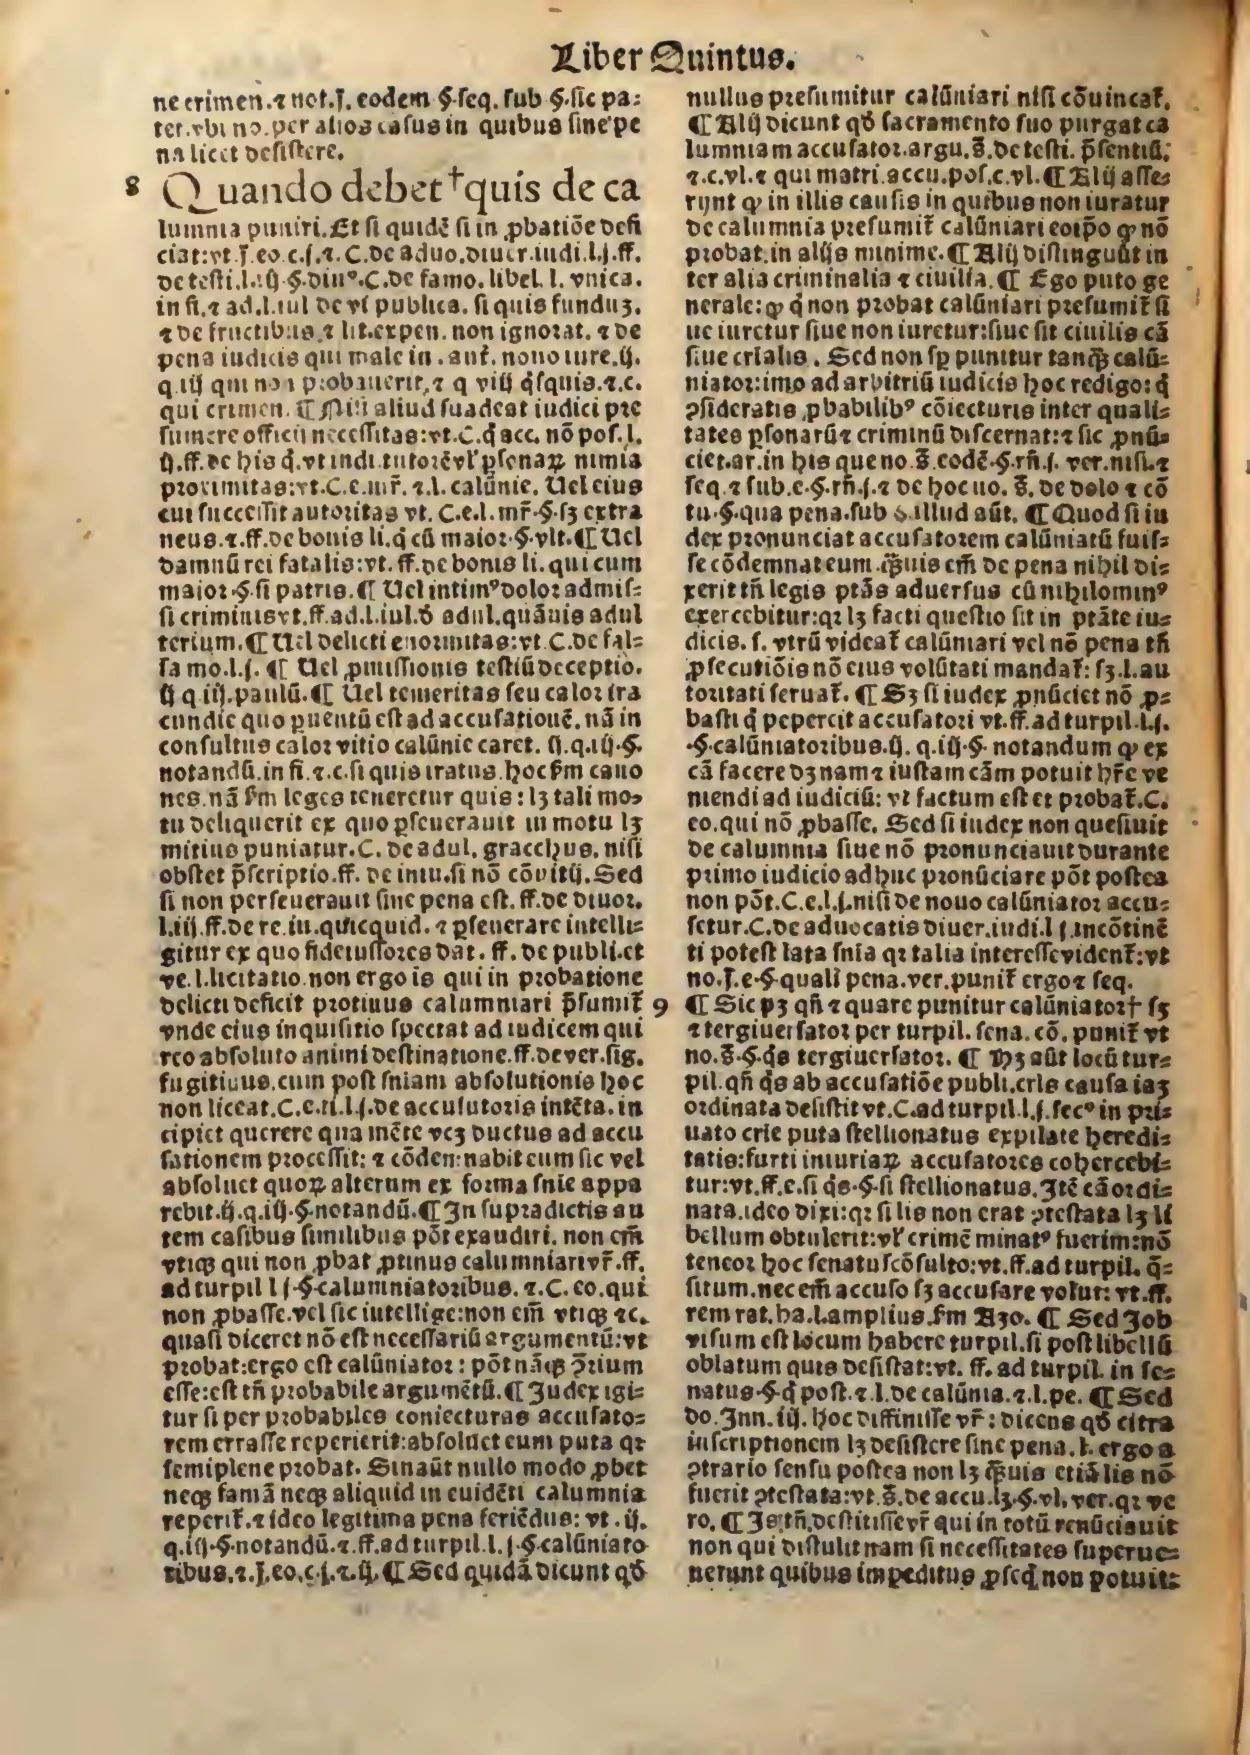 Liber Quintus.
ne crimen. ⁊ not. j. eodem §. seq. sub §. sic pa-
ter. vbi no. per alios casus in quibus sine pe
na licet desistere.
8 Quando debet † quis de ca
lumnia puniri. Et si quidē si in ꝓbatiōe defi
ciat: vt. j. eo. c. j. ⁊. C. de aduo. diuer. iudi. l. j. ff.
de testi. l. iij. §. diuꝰ. C. de famo. libel. l. vnica.
in fi. ⁊ ad. l. iul de vi publica. si quis funduʒ.
⁊ de fructibus. ⁊ lit. expen. non ignorat. ⁊ de
pena iudicis qui male in. aut̄. nouo iure. ij.
q. iij qui non probauerit, ⁊ q viij q̄squis. ⁊. c.
qui crimen. ¶ Nisi aliud suadeat iudici pre
sumere officii necessitas: vt. C. q̄ acc. nō pos. l.
ij. ff. de his q̄. vt indi. tutorē vl' ꝑsonaꝝ nimia
proximitas: vt. C. e. mr̄. ⁊. l. calūnie. Uel eius
cui successit autoritas vt. C. e. l. mr̄. §. sʒ extra
neus. ⁊. ff. de bonis li. q̄ cū maior. §. vlt. ¶ Uel
damnū rei fatalis: vt. ff. de bonis li. qui cum
maior. §. si patris. ¶ Uel intimꝰ dolor admis-
si criminis vt. ff. ad. l. iul. d̄ adul. quāuis adul
terium. ¶ Uel delicti enormitas: vt C. de fal-
sa mo. l. j. ¶ Uel ꝓmissionis testiū deceptio.
ij q iij. paulū. ¶ Uel temeritas seu calor ira
cundie quo ꝑuentū est ad accusationē. nā in
consultus calor vitio calūnie caret. ij. q. iij. §.
notandū. in fi. ⁊. c. si quis iratus. hoc s̄m cano
nes. nā s̄m leges teneretur quis: lʒ tali mo-
tu deliquerit ex quo ꝑseuerauit in motu lʒ
mitius puniatur. C. de adul. gracchus. nisi
obstet p̄scriptio. ff. de iniu. si nō cōuitij. Sed
si non perseuerauit sine pena est. ff. de diuor.
l. iij. ff. de re. iu. quicquid. ⁊ ꝑseuerare intelli-
gitur ex quo fideiussores dat. ff. de publi. et
ve. l. licitatio. non ergo is qui in probatione
delicti deficit protinus calumniari p̄sumit̄
vnde eius inquisitio spectat ad iudicem qui
reo absoluto animi destinatione. ff. de ver. sig.
fugitiuus. cum post sniam absolutionis hoc
non liceat. C. e. ti. l. j. de accusatoris intēta. in
cipiet querere qua mēte veʒ ductus ad accu
sationem processit: ⁊ cōdemnabit eum sic vel
absoluet quoꝝ alterum ex forma snie appa
rebit. ij. q. iij. §. notandū. ¶ In supradictis au
tem casibus similibus pōt exaudiri. non em̄
vtiqꝫ qui non ꝓbat ꝓtinus calumniari vr̄. ff.
ad turpil l j. §. calumniatoribus. ⁊. C. eo. qui
non ꝓbasse. vel sic intellige: non em̄ vtiqꝫ ⁊c.
quasi diceret nō est necessariū argumentū: vt
probat: ergo est calūniator: pōt nāqꝫ ꝯ̄rium
esse: est tn̄ probabile argumētū. ¶ Judex igi-
tur si per probabiles coniecturas accusato-
rem errasse reperierit: absoluet eum puta qr
semiplene probat. Sin aūt nullo modo ꝓbet
neqꝫ famā neqꝫ aliquid in euidēti calumnia
reperit̄. ⁊ ideo legitima pena feriēdus: vt. ij.
q. iij. §. notandū. ⁊. ff. ad turpil. l. j. §. calūniato
ribus. ⁊. j. eo. c. j. ⁊. ij. ¶ Sed quidā dicunt qd̄
nullus presumitur calūniari nisi cōuincat̄.
¶ Alij dicunt qd̄ sacramento suo purgat ca
lumniam accusator. argu. s̄. de testi. p̄sentiū.
⁊. c. vl. ⁊ qui matri. accu. pos. c. vl. ¶ Alij asse-
runt ꝙ in illis causis in quibus non iuratur
de calumnia presumit̄ calūniari eoip̄o ꝙ nō
probat. in alijs minime. ¶ Alij distinguūt in
ter alia criminalia ⁊ ciuilia. ¶ Ego puto ge
nerale: ꝙ q̄ non probat calūniari presumit̄ si
ue iuretur siue non iuretur: siue sit ciuilis cā
siue crīalis. Sed non sꝑ punitur tanqꝫ calū-
niator: imo ad arbitriū iudicis hoc redigo: q̄
ꝯsideratis ꝓbabilibꝰ cōiecturis inter quali-
tates ꝑsonarū ⁊ criminū discernat: ⁊ sic ꝓnū-
ciet. ar. in his que no. s̄. eodē. §. rn̄. j. ver. nisi. ⁊
seq. ⁊ sub. e. §. rn̄. j. ⁊ de hoc no. s̄. de dolo ⁊ cō
tu. §. qua pena. sub §. illud aūt. ¶ Quod si iu
dex pronunciat accusatorem calūniatū fuis-
se cōdemnat eum. q̄uis em̄ de pena nihil di-
xerit tn̄ legis ptās aduersus eū nihilominꝰ
exercebitur: qr lʒ facti questio sit in ptāte iu-
dicis. s. vtrū videat̄ calūniari vel nō pena tn̄
ꝓsecutiōis nō eius volūtati mandat̄: sʒ. l. au
toritati seruat̄. ¶ Sʒ si iudex ꝓnūciet nō ꝓ-
basti q̄ pepercit accusatori vt. ff. ad turpil. l. j.
§. calūniatoribus. ij. q. iij. §. notandum ꝙ ex
cā facere dʒ nam ⁊ iustam cām potuit hr̄e ve
niendi ad iudiciū: vt factum est et probat̄. C.
eo. qui nō ꝓbasse. Sed si iudex non quesiuit
de calumnia siue nō pronunciauit durante
primo iudicio adhuc pronūciare pōt postea
non pōt. C. e. l. j. nisi de nouo calūniator accu-
setur. C. de aduocatis diuer. iudi. l j. incōtinē
ti potest lata snia qr talia interesse vident̄: vt
no. j. e. §. quali pena. ver. punit̄ ergo ⁊ seq.
9 ¶ Sic pʒ qn̄ ⁊ quare punitur calūniator † sʒ
⁊ tergiuersator per turpil. sena. cō. punit̄ vt
no. s̄. §. q̄s tergiuersator. ¶ Hʒ aūt locū tur-
pil. qn̄ q̄s ab accusatiōe publi. crīs causa iaʒ
ordinata desistit vt. C. ad turpil. l. j. secꝰ in pri-
uato crīe puta stellionatus expilate heredi-
tatis: furti iniuriaꝝ accusatores cohercebi-
tur: vt. ff. e. si q̄s. §. si stellionatus. Itē cā ordi-
nata. ideo dixi: qr si lis non erat ꝯtestata lʒ li
bellum obtulerit: vl' crimē minatꝰ fuerim: nō
teneor hoc senatuscōsulto: vt. ff. ad turpil. q̄-
situm. nec em̄ accuso sʒ accusare volūt: vt. ff.
rem rat. ha. l. amplius. s̄m Aʒo. ¶ Sed Job
visum est locum habere turpil. si post libellū
oblatum quis desistat: vt. ff. ad turpil. in se-
natus. §. q̄ post. ⁊. l. de calūnia. ⁊. l. pe. ¶ Sed
do. Inn. iij. hoc diffinisse vr̄: dicens qd̄ citra
inscriptionem lʒ desistere sine pena. l. ergo a
ꝯtrario sensu postea non lʒ q̄uis etiā lis nō
fuerit ꝯtestata: vt. s̄. de accu. lʒ. §. vl. ver. qr ve
ro. ¶ Is. tn̄. destitisse vr̄ qui in totū renūciauit
non qui distulit nam si necessitates superue-
nerunt quibus impeditus ꝓseq̄ non potuit: